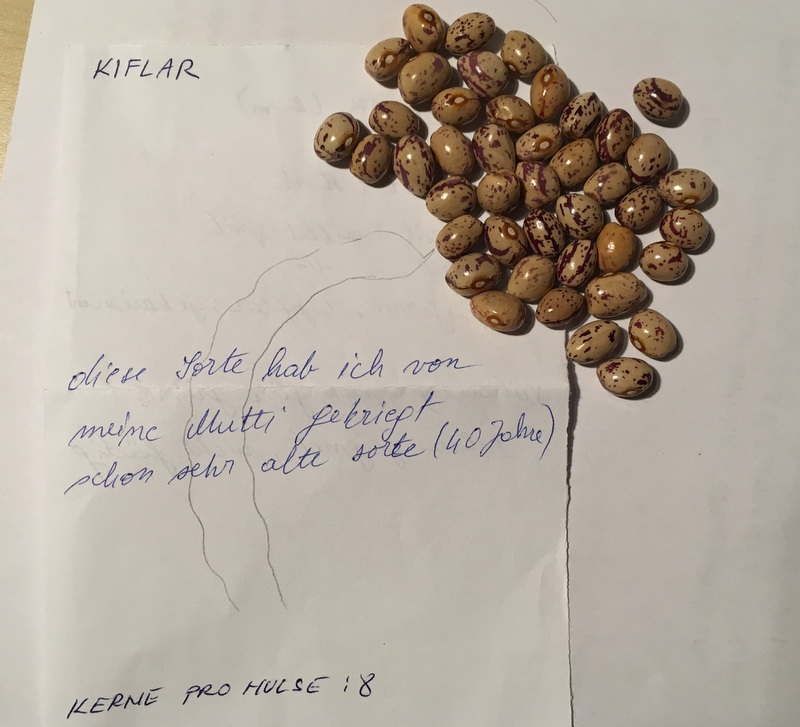 KIFLAR
diese Sorte hab ich von
meine Mutti gekriegt
schon sehr alte sorte (40 Jahre)
KERNE PRO HULSE : 8